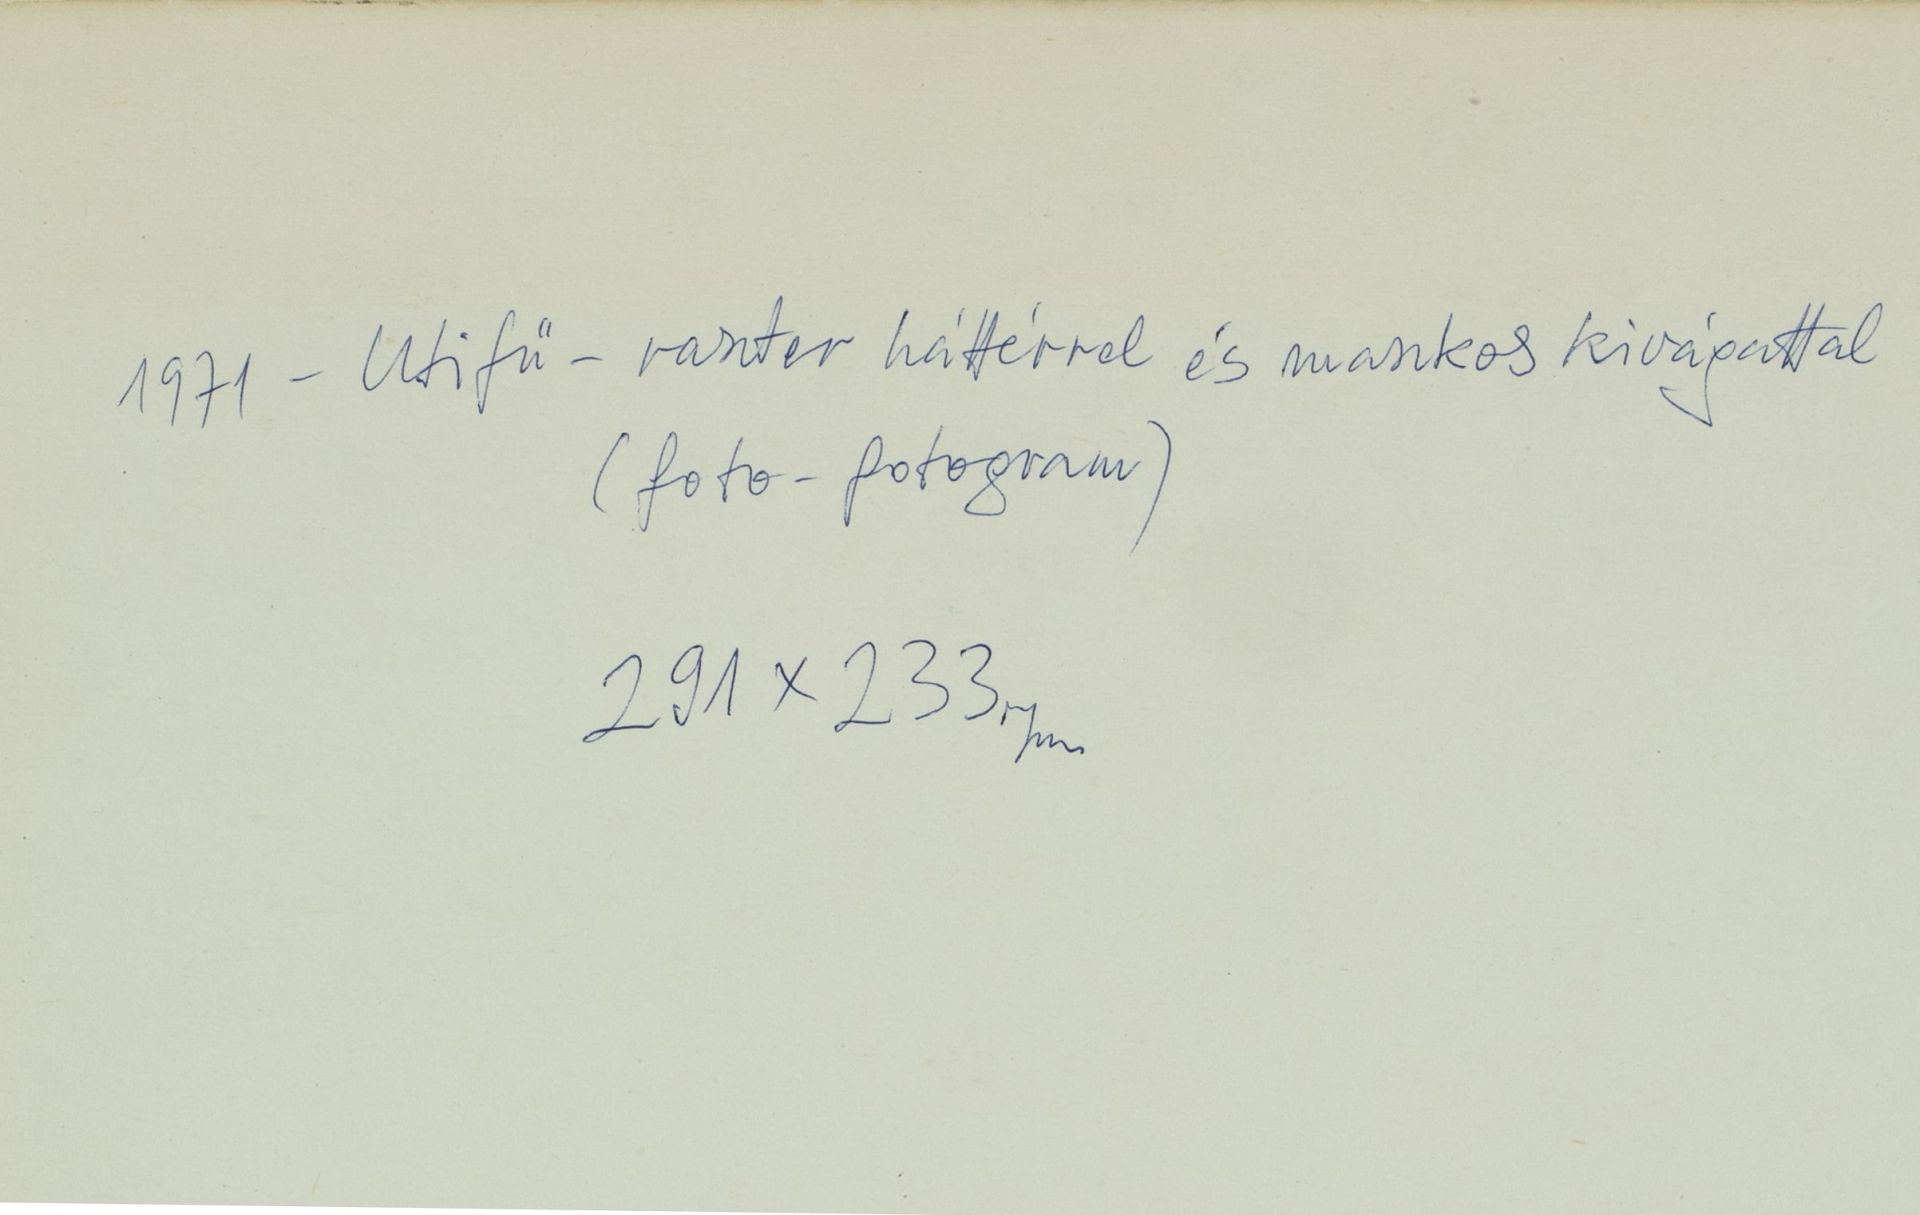 1971 - Utifű - raszter háttérrel és maszkos kivágattal
(foto-fotogram)
291 x 233 mm